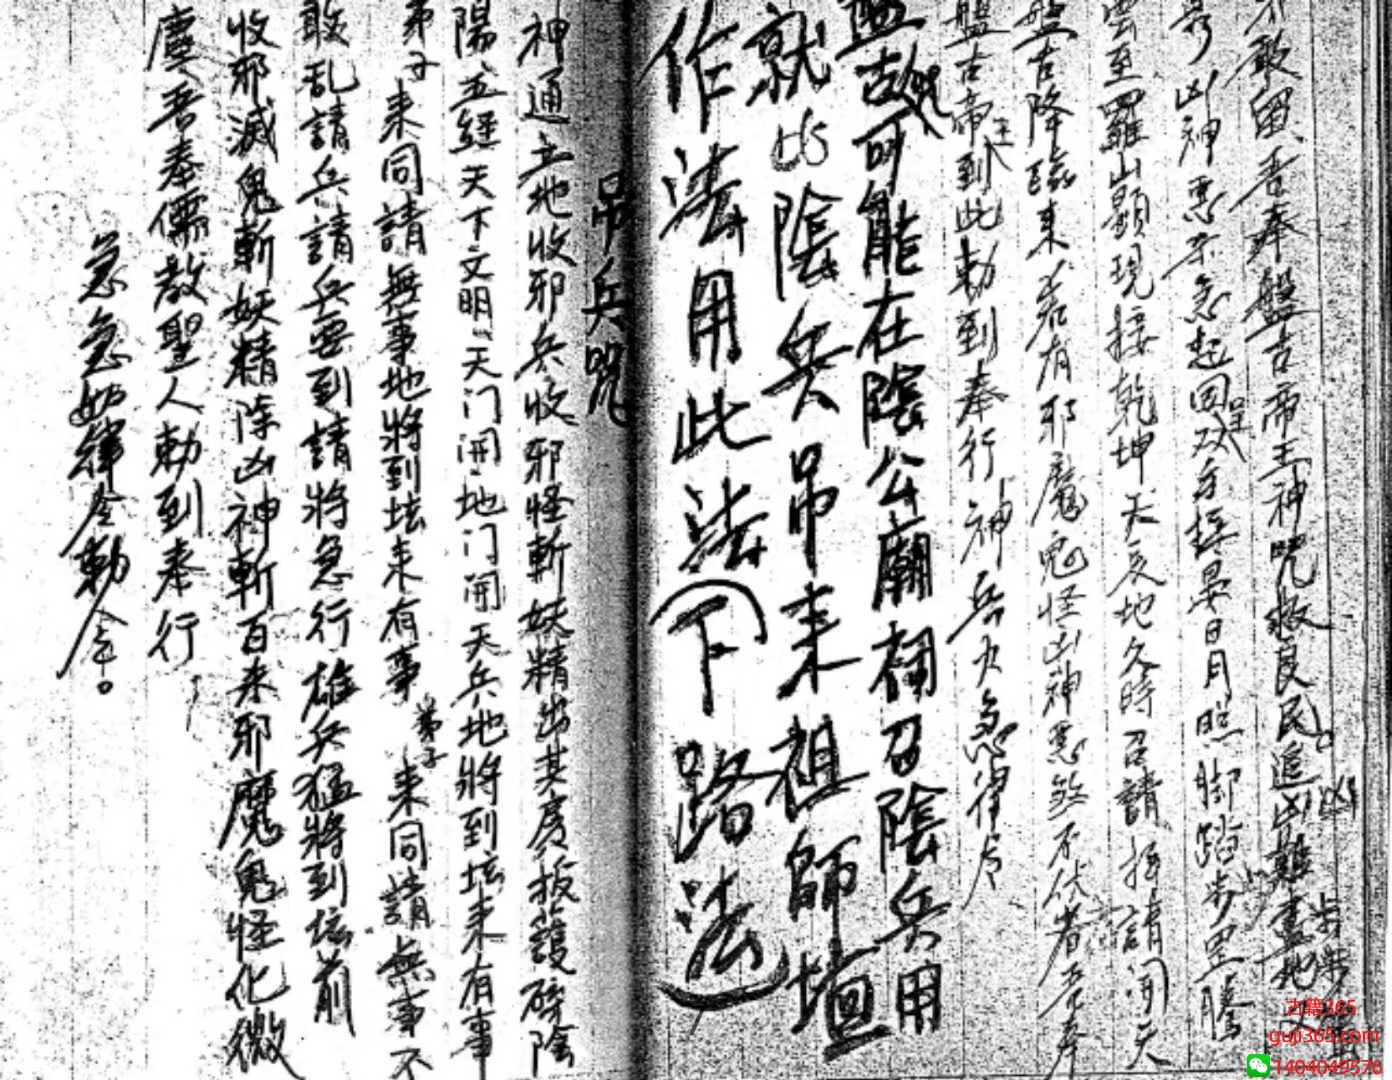 不敢留吾奉盤古帝王神咒救良民追凶難畫地
凶神惡
急起回双手接日月照脚踏步
雲至羅山顯現接乾坤天長地久時召請拜請開天
盤古降臨來若有邪魔鬼怪凶神惡煞不伏者吾奉
盤古帝王到此勅到奉行神兵火急律令
盤古咒可能在陰公廟祠召陰兵用
就此陰兵吊来祖師壇
作法用此法(下路法)
吊兵咒
神通土地收邪兵收邪怪斬妖精出其房板護碎陰
陽五經天下文明天门開地门開天兵地將到坛来有事
弟子来同請無事地將到坛来有事弟子来同請無事不
敢乱請兵請兵要到請將急行雄兵猛將到坛前
收邪滅鬼斬妖精除凶神斬百来邪魔鬼怪化微
塵吾奉儒教聖人勅到奉行
急急如律令勅令。
古籍365
guji365.com
1404049576